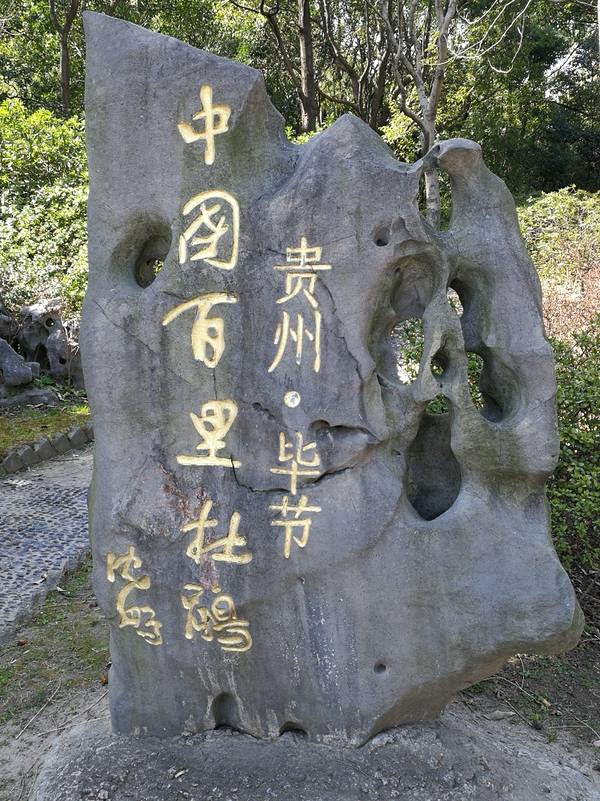 贵州·毕节
中国百里杜鹃
沈鹏